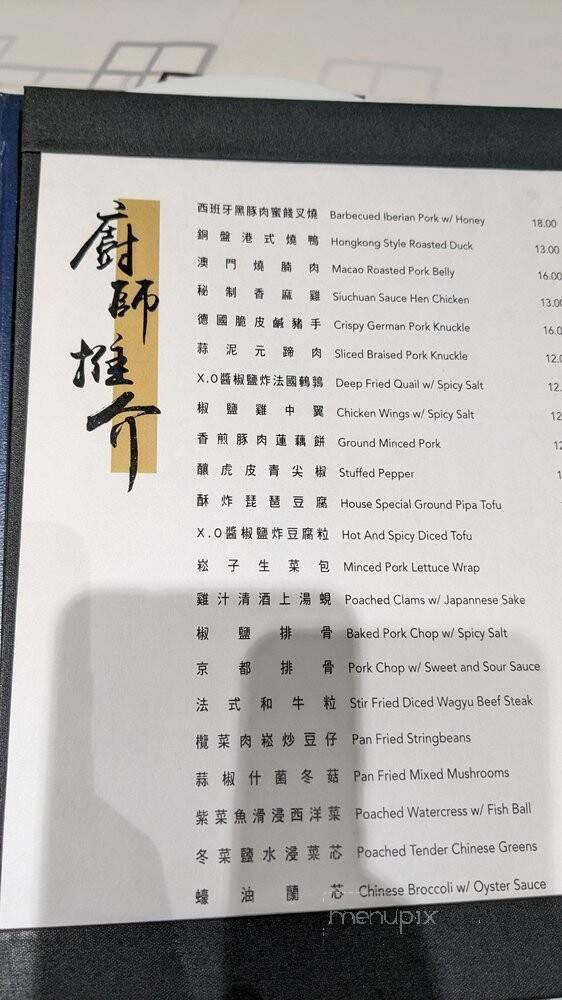 廚師推介
西班牙黑豚肉蜜餞叉燒 Barbecued Iberian Pork w/ Honey 18.00
銅盤港式燒鴨 Hongkong Style Roasted Duck 13.00
澳門燒腩肉 Macao Roasted Pork Belly 16.00
秘制香麻雞 Siuchuan Sauce Hen Chicken 13.00
德國脆皮鹹豬手 Crispy German Pork Knuckle 16.0
蒜泥元蹄肉 Sliced Braised Pork Knuckle 12.0
X.O醬椒鹽炸法國鵪鶉 Deep Fried Quail w/ Spicy Salt 12.
椒鹽雞中翼 Chicken Wings w/ Spicy Salt 12
香煎豚肉蓮藕餅 Ground Minced Pork 12
釀虎皮青尖椒 Stuffed Pepper 1
酥炸琵琶豆腐 House Special Ground Pipa Tofu
X.O醬椒鹽炸豆腐粒 Hot And Spicy Diced Tofu
崧子生菜包 Minced Pork Lettuce Wrap
雞汁清酒上湯蜆 Poached Clams w/ Japannese Sake
椒鹽排骨 Baked Pork Chop w/ Spicy Salt
京都排骨 Pork Chop w/ Sweet and Sour Sauce
法式和牛粒 Stir Fried Diced Wagyu Beef Steak
欖菜肉崧炒豆仔 Pan Fried Stringbeans
蒜椒什菌冬菇 Pan Fried Mixed Mushrooms
紫菜魚滑浸西洋菜 Poached Watercress w/ Fish Ball
冬菜鹽水浸菜芯 Poached Tender Chinese Greens
蠔油蘭芯 Chinese Broccoli w/ Oyster Sauce
menupix